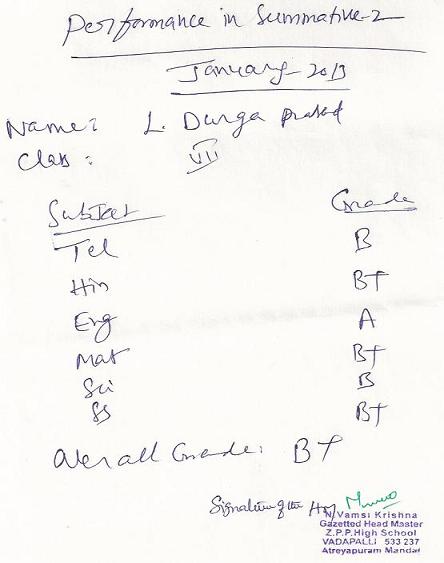 Performance in Summative-2
January-2013
Name: L. Durga prasad
Class: VII
Subject Grade
Tel B
Hin B+
Eng A
Mat B+
Sci B
SS B+
Overall Grade: B+
Signature of the HM
N. Vamsi Krishna
Gazetted Head Master
Z.P.P. High School
VADAPALLI 533 237
Atreyapuram Mandal